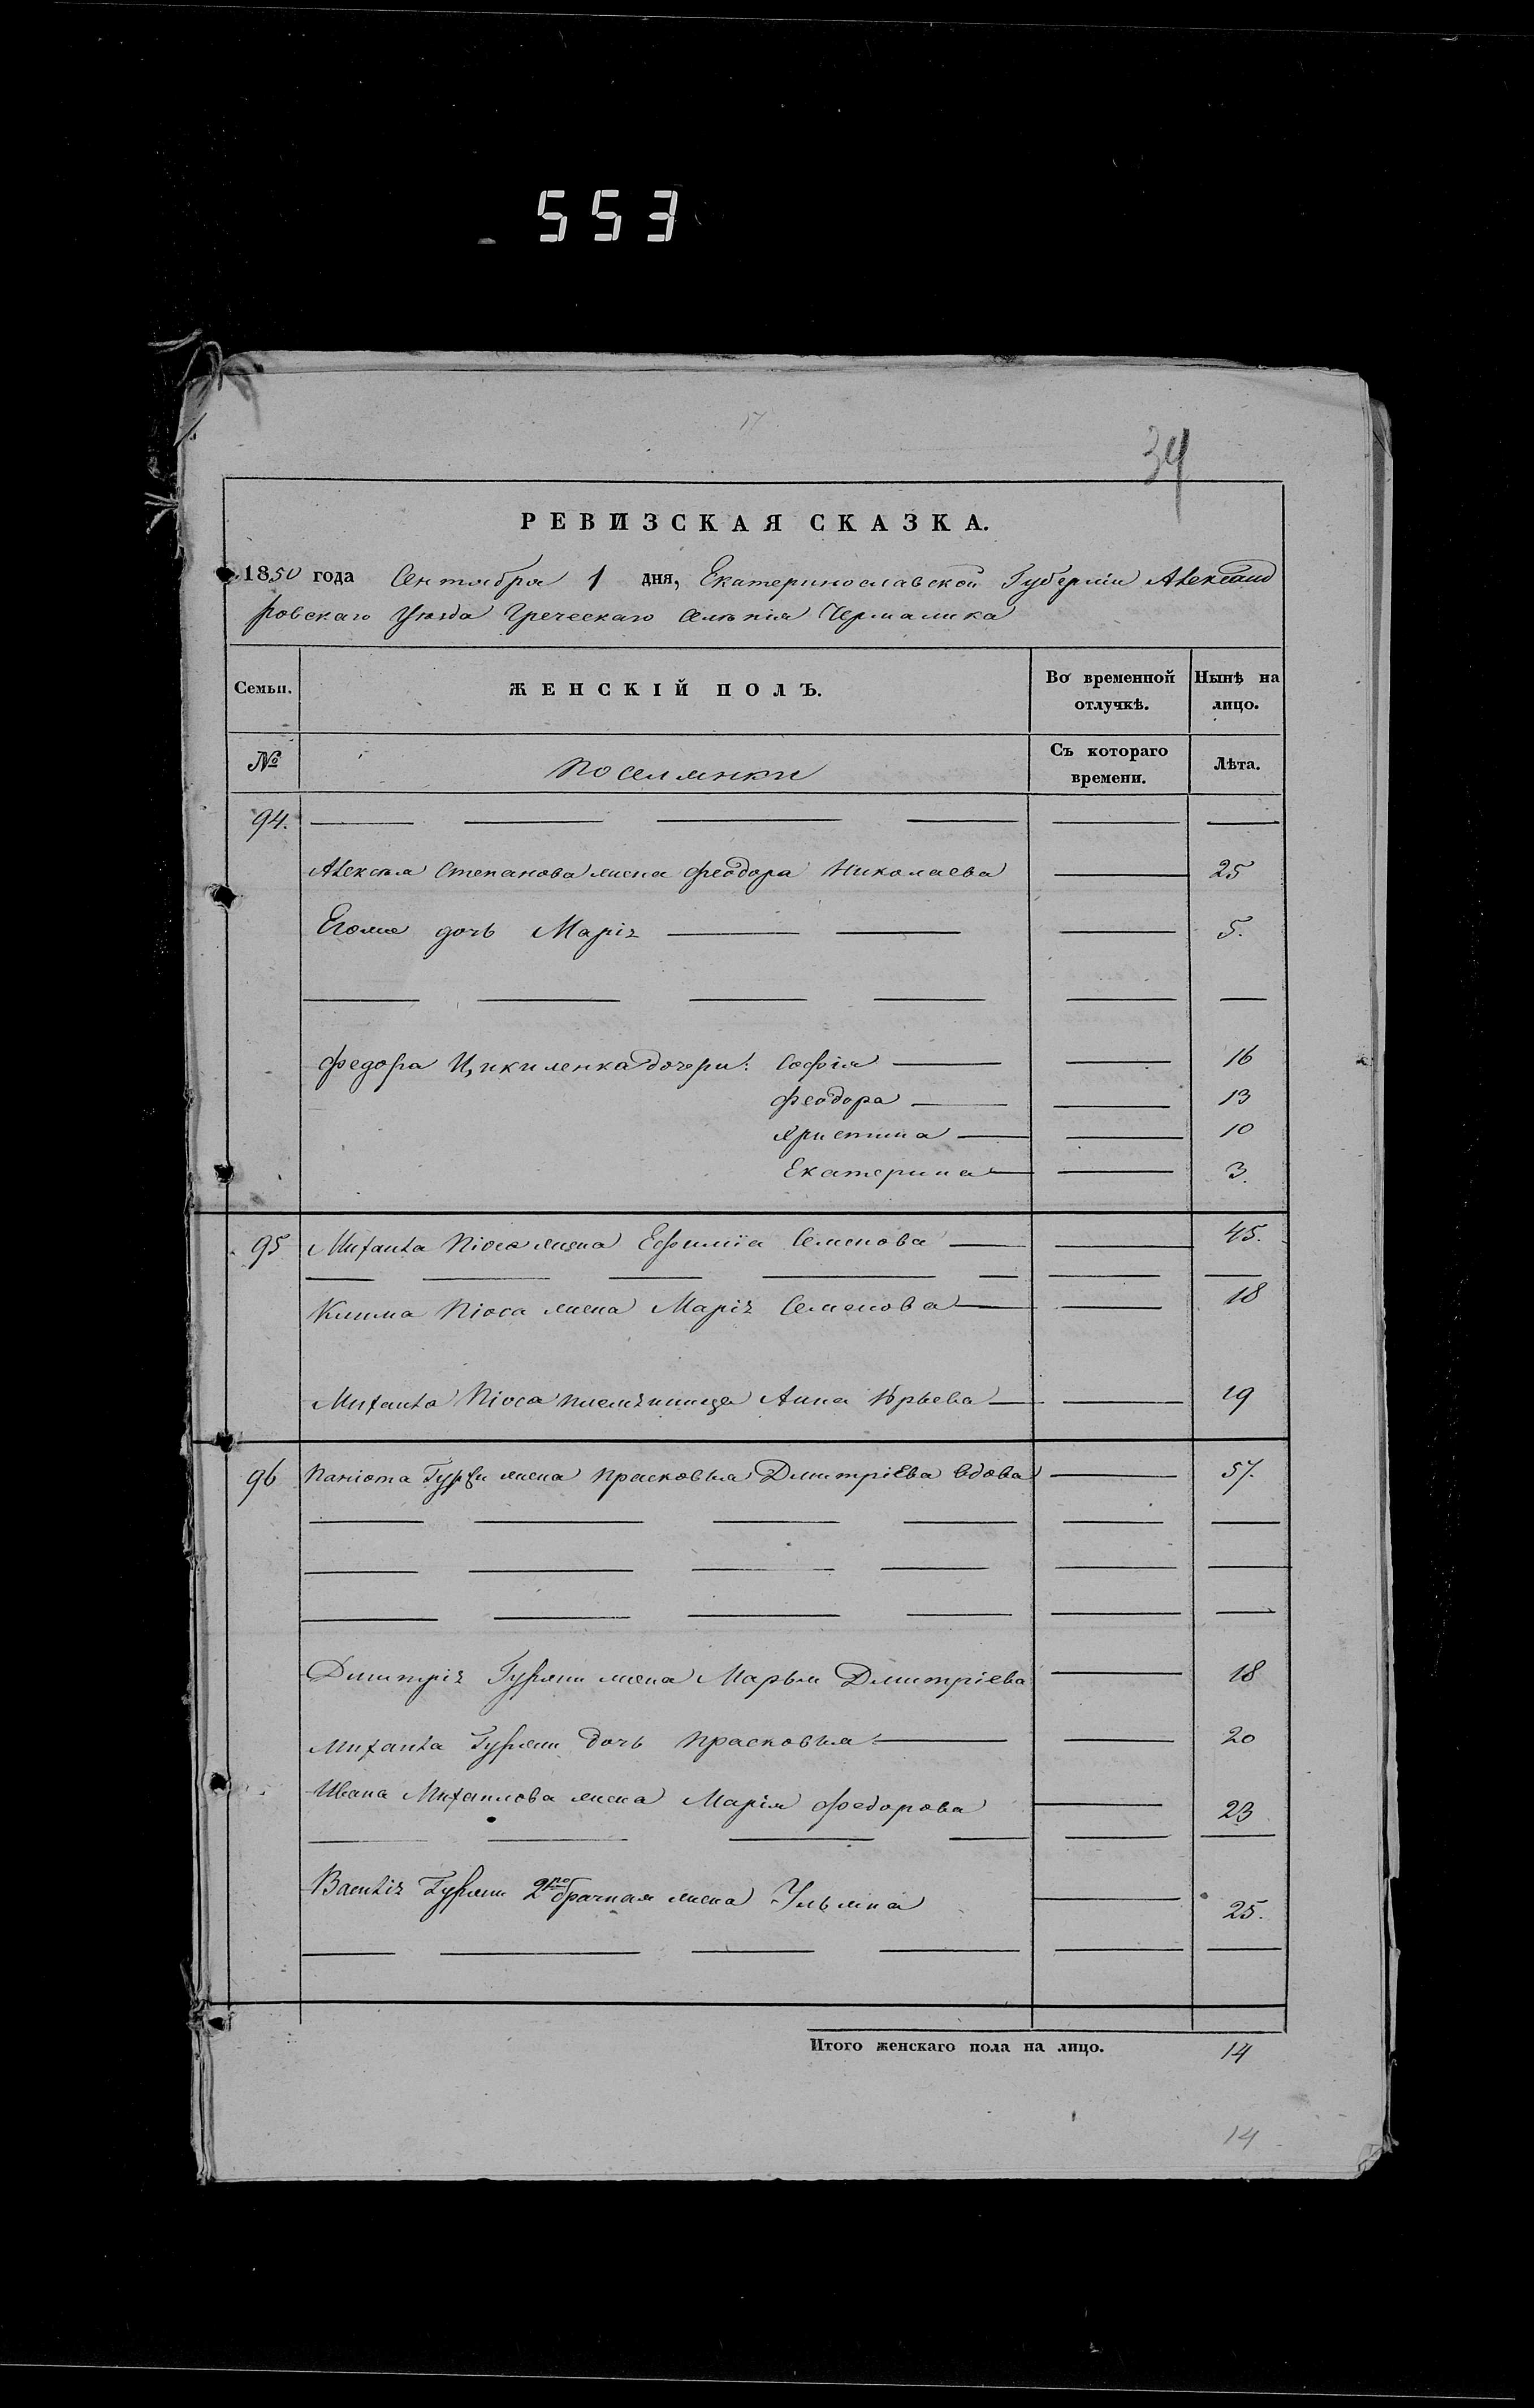 553
17
34
РЕВИЗСКАЯ СКАЗКА.
1850 года Сентября 1 дня, Екатеринославской Губерніи Александ
ровскаго Уѣзда Греческаго Селенія Чермалика
Семьи. ЖЕНСКІЙ ПОЛЪ. Во временной отлучкѣ. Нынѣ на лицо.
№ Поселянки Съ котораго времени. Лѣта.
94.
Алексѣя Степанова жена Феодора Николаева 25
Егоже дочь Марія 5.
Федора Цикиленка дочери: Софія 16
Феодора 13
Христина 10
Екатерина 3.
95 Михаила Піоса жена Ефимія Семенова 45.
Клима Піоса жена Марія Семенова 18
Михаила Піоса племянница Анна Юрьева 19
96 Паніота Гуржи жена Прасковья Дмитріева вдова 57.
Дмитрія Гуржи жена Марья Дмитріева 18
Михаила Гуржи дочь Прасковья 20
Ивана Михайлова жена Марія Федорова 23
Василія Гуржи 2по брачная жена Ульяна 25.
Итого женскаго пола на лицо. 14
14